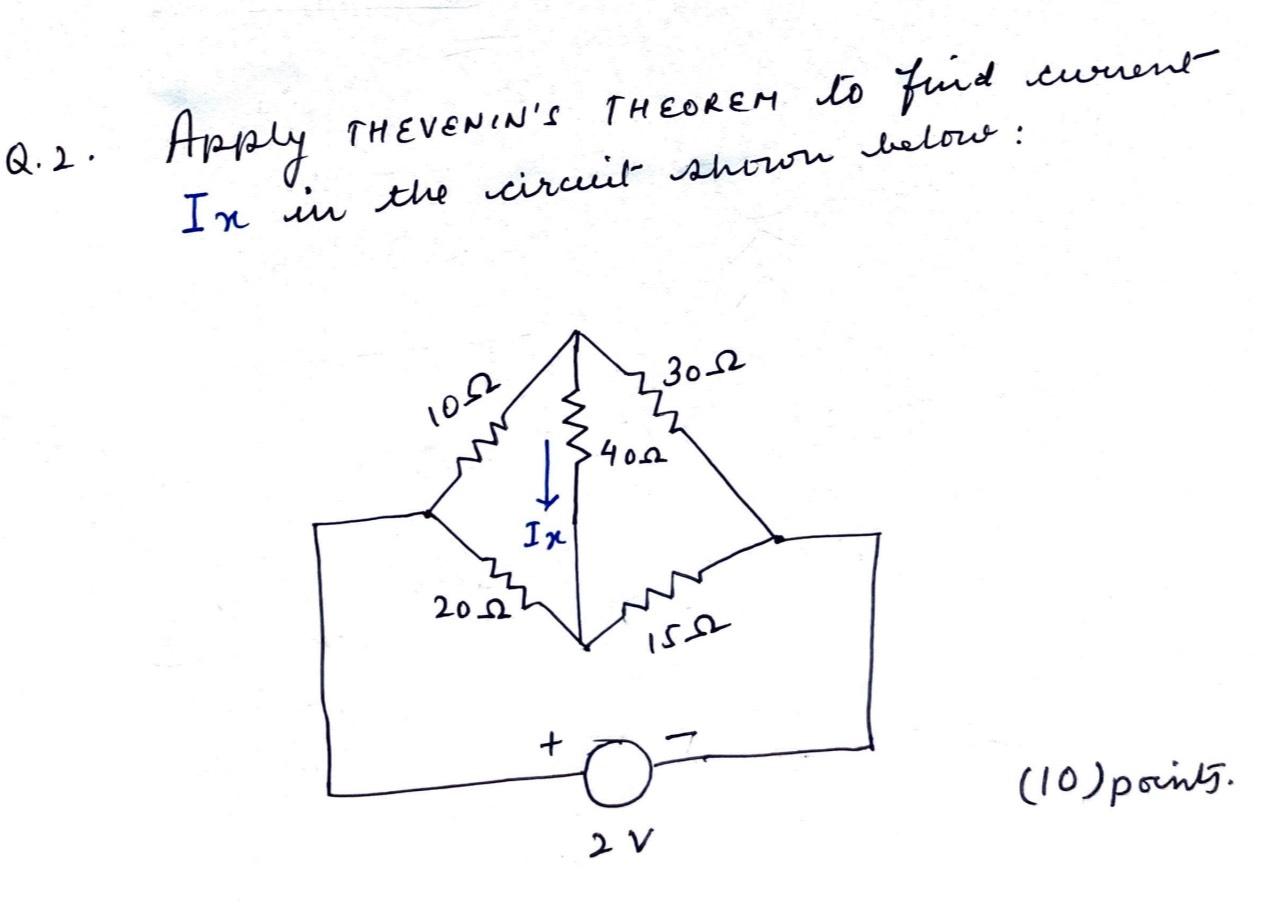 Q.2. Apply THEVENIN'S THEOREM to find current
Ix in the circuit shown below:
10Ω
30Ω
40Ω
Ix
20Ω
15Ω
+
-
2 V
(10) points.